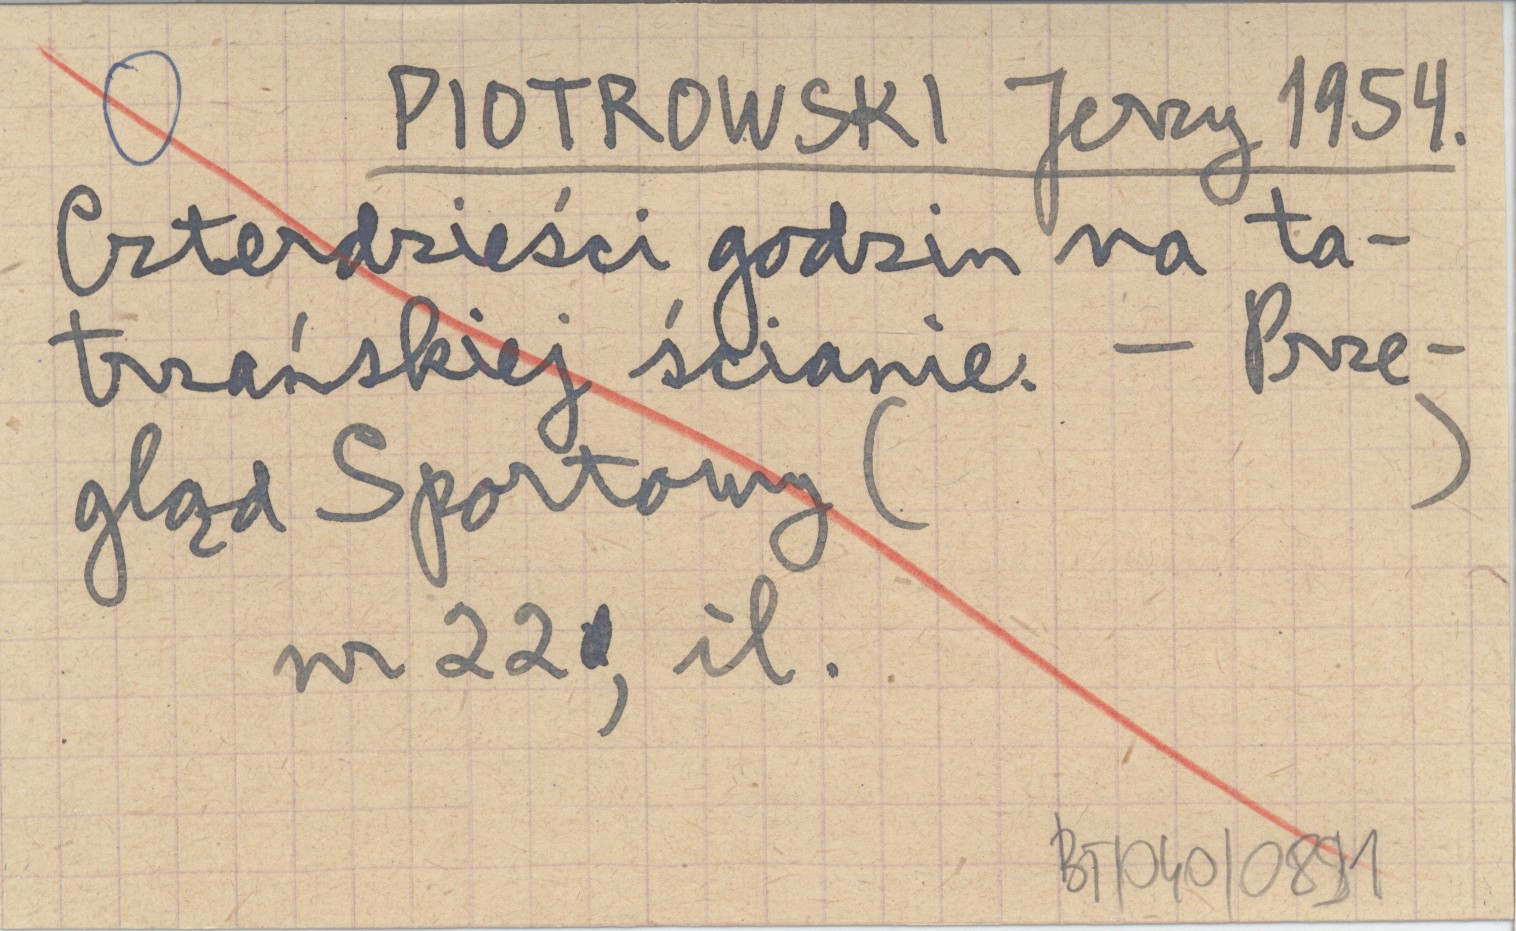 PIOTROWSKI Jerzy 1954.
Czterdzieści godzin na ta-
trzańskiej ścianie. — Prze-
gląd Sportowy (      )
nr 22, il.
BT/040/0891